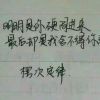 明明是你硬闯进来
最后却是我舍不得你
墨菲定律